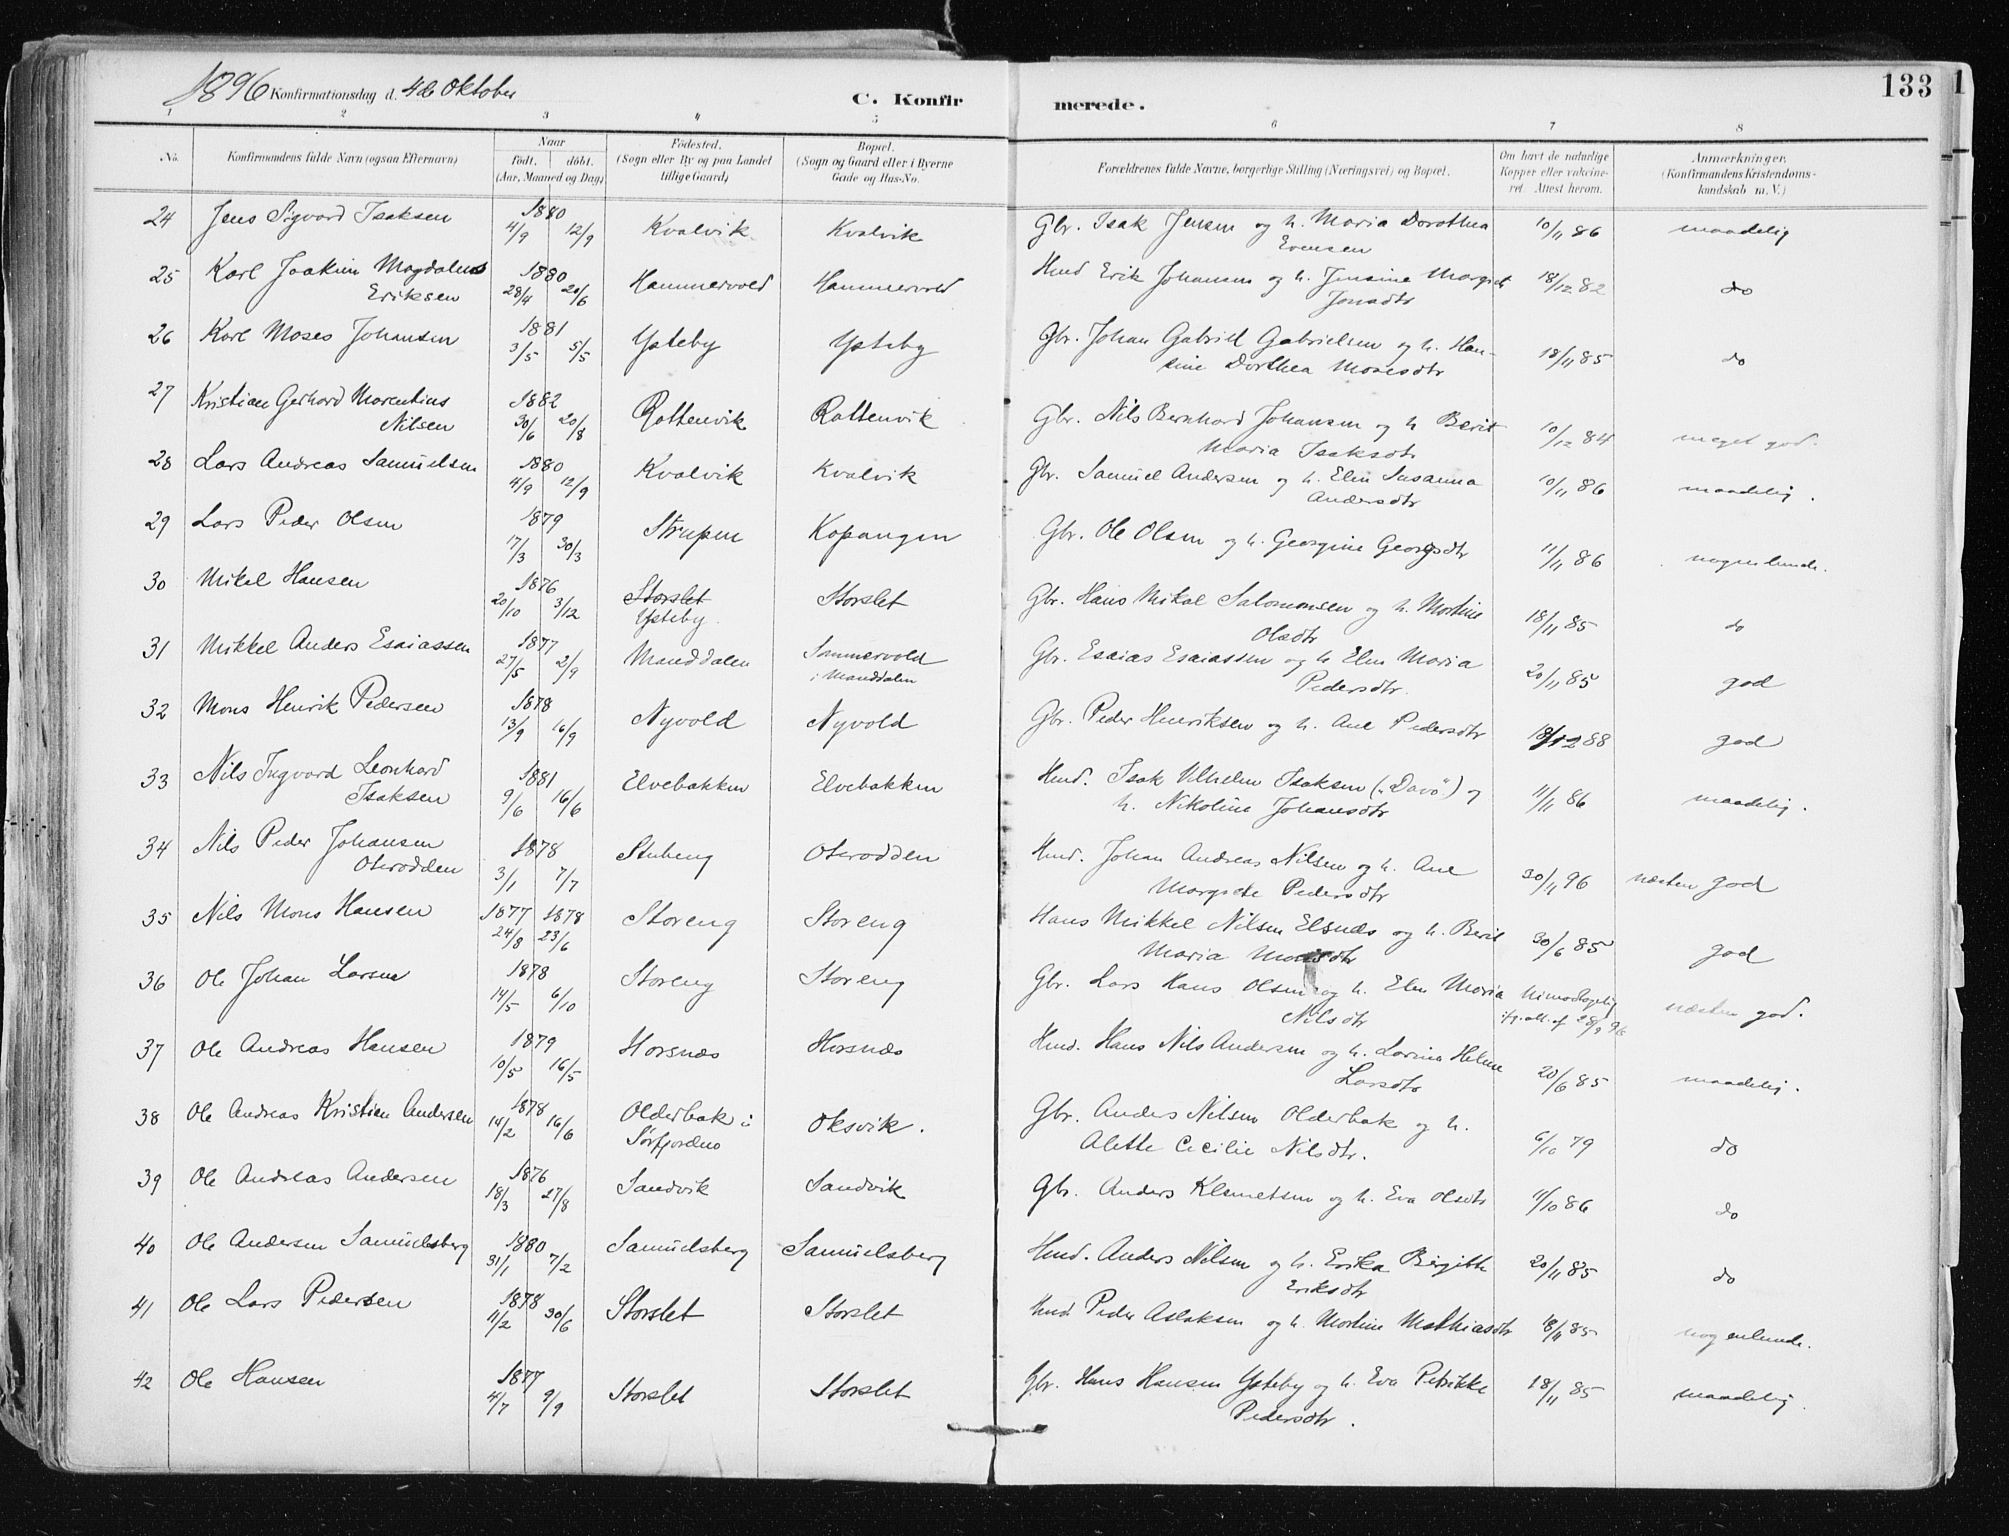 1896 Konfirmationsdag d. 4de Oktober C. Konfirmerede. 133
1 2 3 4 5 6 7 8
No. Konfirmandens fulde Navn (ogsaa Efternavn) Naar født. døbt. (Aar, Maaned og Dag) Fødested. (Sogn eller By og paa Landet tillige Gaard) Bopæl. (Sogn og Gaard eller i Byerne Gade og Hus-No. Forældrenes fulde Navne, borgerlige Stilling (Næringsvei) og Bopæl. Om havt de naturlige Kopper eller vakcineret. Attest herom. Anmærkninger. (Konfirmandens Kristendomskundskab m. V.)
24 Jens Sigvard Isaksen 1880 4/9 12/9 Kvalvik Kvalvik Gbr. Isak Jensen og h. Maria Dorothea Evensen 10/11 86 maadelig
25 Karl Joakim Magdalus Eriksen 1880 28/4 20/6 Hammervold Hammervold Hmd Erik Johansen og h. Jensine Margret Jonsdtr 18/12 82 do
26 Karl Moses Johansen 1881 3/5 5/5 Ysteby Ysteby Gbr. Johan Gabriel Gabrielsen og h. Hansine Dorthea Mosesdtr 18/11 85 do
27 Kristian Gerhard Marentius Nilsen 1882 30/6 20/8 Rottenvik Rottenvik Gbr. Nils Bernhard Johansen og h Berit Maria Isaksdtr 10/12 84 meget god.
28 Lars Andreas Samuelsen 1880 4/9 12/9 Kvalvik Kvalvik Gbr. Samuel Andersen og h. Elen Susanna Andersdtr 10/11 86 maadelig.
29 Lars Peder Olsen 1879 17/3 30/3 Strupen Kopangen Gbr. Ole Olsen og h. Georgine Georgsdtr 11/11 86 nogenlunde.
30 Mikal Hansen 1876 20/10 3/12 Storslet Ysteby. Storslet Gbr. Hans Mikal Salomonsen og h. Mortine Olsdtr 18/11 85 do
31 Mikkel Anders Esaiassen 1877 27/5 2/9 Manddalen Sammervold i Manddalen Gbr. Esaias Esaiassen og h Elen Maria Pedersdtr. 20/11 85 god
32 Mons Henrik Pedersen 1878 13/9 16/9 Nyvold Nyvold Gbr. Peder Henriksen og h. Ane Pedersdtr 18/12 88 god
33 Nils Ingvard Leonhard Isaksen 1881 9/6 16/6 Elvebakken Elvebakken Hmd. Isak Vilhelm Isaksen („Davo") og h. Nikoline Johansdtr 11/11 86 maadelig.
34 Nils Peder Johansen Oterodden 1878 3/1 7/7 Stubeng Oterodden Hmd. Johan Andreas Nilsen og h. Ane Margrete Pedersdtr 30/11 96 næsten god
35 Nils Mons Hansen 1877 24/8 1878 23/6 Storeng Storeng Hans Mikkel Nilsen Elsnæs og h. Berit Maria Monsdtr 30/6 85 god
36 Ole Johan Larsen 1878 14/5 6/10 Storeng Storeng Gbr. Lars Hans Olsen og h. Elen Maria Nilsdtr 28/9 96 næsten god.
37 Ole Andreas Hansen 1879 10/5 16/5 Horsnæs Horsnæs Hmd. Hans Nils Andersen og h. Lovina Helene Larsdtr 20/6 85 maadelig.
38 Ole Andreas Kristian Andersen 1878 14/2 16/6 Olderbak i Sørfjorden Oksvik. Gbr. Anders Nilsen Olderbak og h. Alette Cecilie Nilsdtr. 6/10 79 do
39 Ole Andreas Andersen 1876 18/3 27/8 Sandvik Sandvik Gbr. Anders Klemetsen og h. Eva Olsdtr 11/10 86 do
40 Ole Andersen Samuelsberg 1880 31/1 7/2 Samuelsberg Samuelsberg Hmd. Anders Nilsen og h. Erika Birgitte Eriksdtr 20/11 85 do
41 Ole Lars Pedersen 1878 11/2 30/6 Storslet Storslet Hmd Peder Aslaksen og h. Mortine Mathiasdtr 18/11 85 nogenlunde.
42 Ole Hansen 1877 4/7 9/9 Storslet Storslet Gbr. Hans Hansen Ysteby og h. Eva Petrikke Pedersdtr. 18/11 85 maadelig.